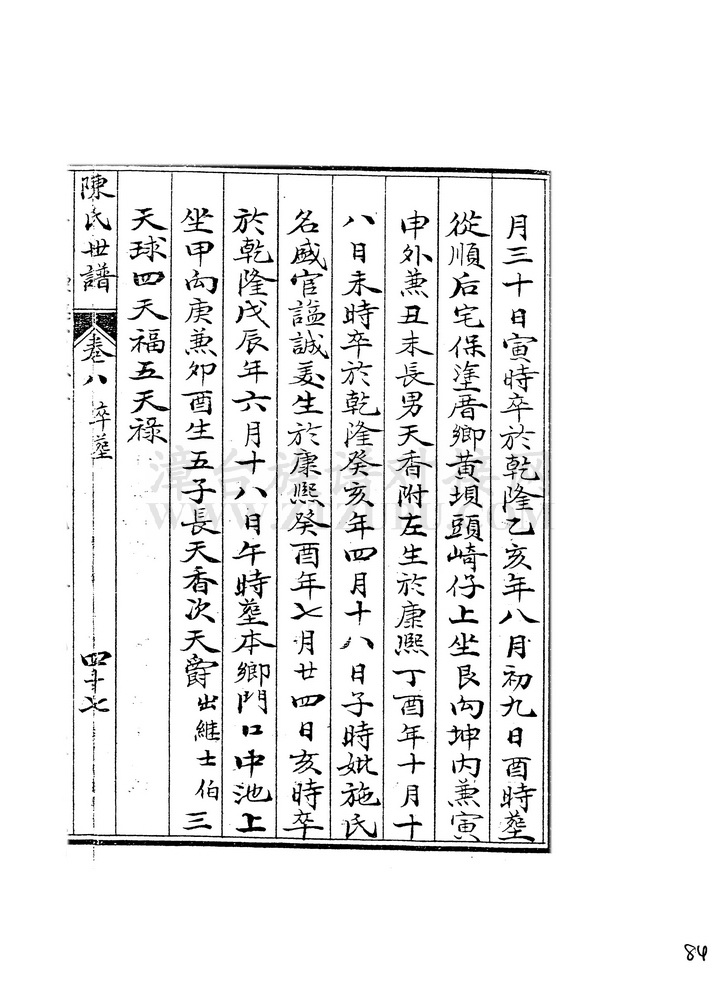 月三十日寅時卒於乾隆乙亥年八月初九日酉時塟
從順后宅保塗厝鄉黄垻頭崎仔上坐艮向坤内兼寅
申外兼丑未長男天香附左生於康熙丁酉年十月十
八日未時卒於乾隆癸亥年四月十八日子時妣施氏
名盛官諡誠爰生於康熙癸酉年七月廿四日亥時卒
於乾隆戊辰年六月十八日午時塟本鄉門口中池上
坐甲向庚兼卯酉生五子長天香次天爵出継士伯三
天球四天福五天祿
陳氏世譜 卷八 卒塟 四十七
漳台族谱对接网
84